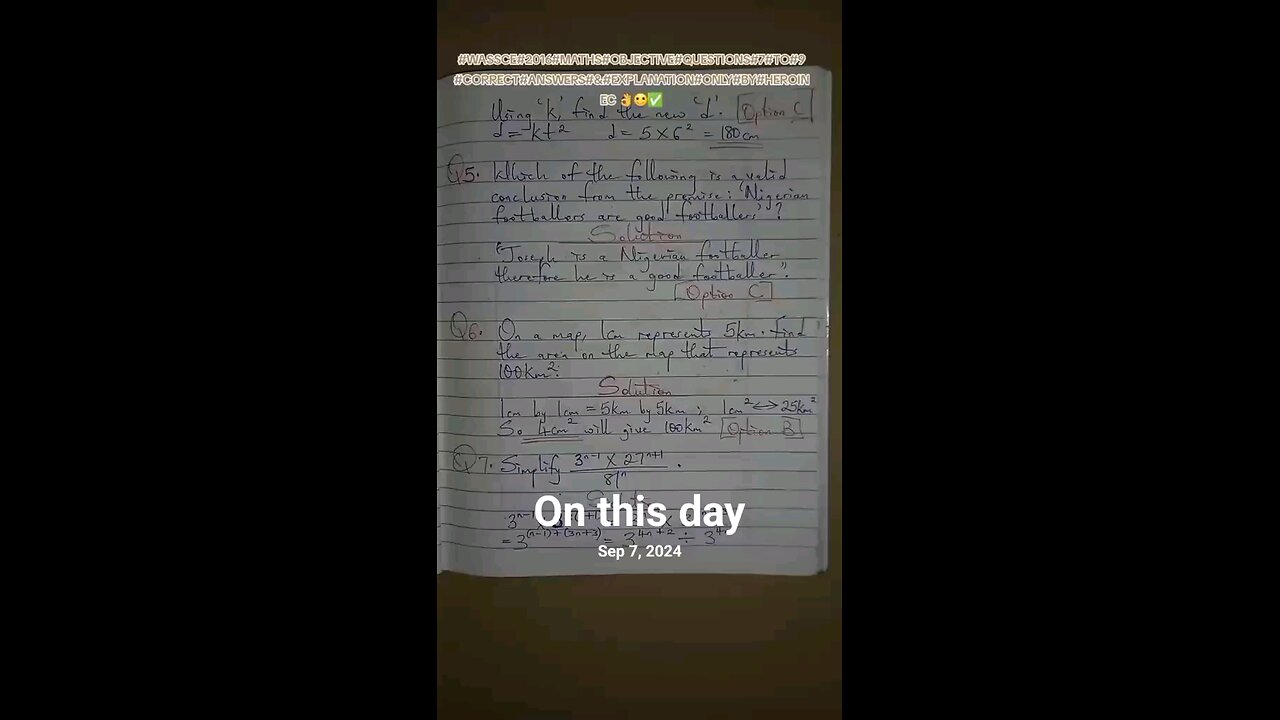 #WASSCE#2016#MATHS#OBJECTIVE#QUESTIONS#7#TO#9
#CORRECT#ANSWERS#&#EXPLANATION#ONLY#BY#HEROIN
EC 👌😀✅
Using 'k', find the new 'd'. Option C
d = kt² d = 5 × 6² = 180cm
Q5. Which of the following is a valid
conclusion from the premise: 'Nigerian
footballers are good footballers'?
Solution
"Joseph is a Nigerian footballer
therefore he is a good footballer".
Option C
Q6. On a map, 1cm represents 5km. find
the area on the map that represents
100km².
Solution
1cm by 1cm = 5km by 5km; 1cm² ↔ 25km²
So 4cm² will give 100km² Option B
Q7. Simplify 3ⁿ⁻¹ × 27ⁿ⁺¹
81ⁿ
On this day
= 3⁽ⁿ⁻¹⁾⁺⁽³ⁿ⁺³⁾ = 3⁴ⁿ⁺² ÷
Sep 7, 2024